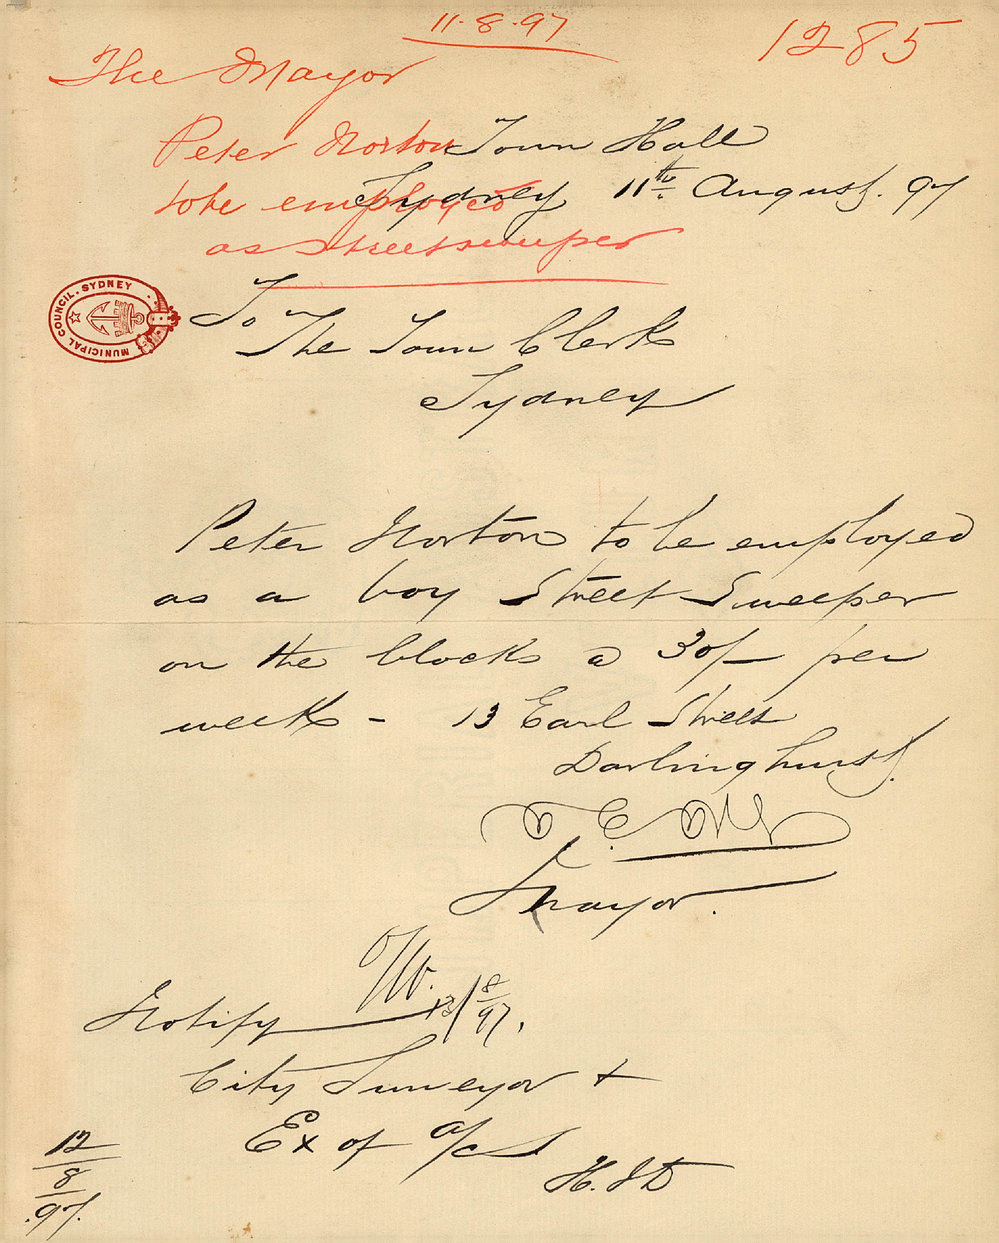 11-8-97
1285
The Mayor
Peter Norton
to be employed
as Streetsweeper
Town Hall
Sydney 11th August. 97
MUNICIPAL COUNCIL. SYDNEY
To
The Town Clerk
Sydney
Peter Norton to be employed
as a boy Street Sweeper
on the blocks @ 30/- per
week - 13 Earl Street
Darlinghurst.
Mayor.
8/97.
Notify
City Surveyor +
Ex of a/cs
12/8/97.